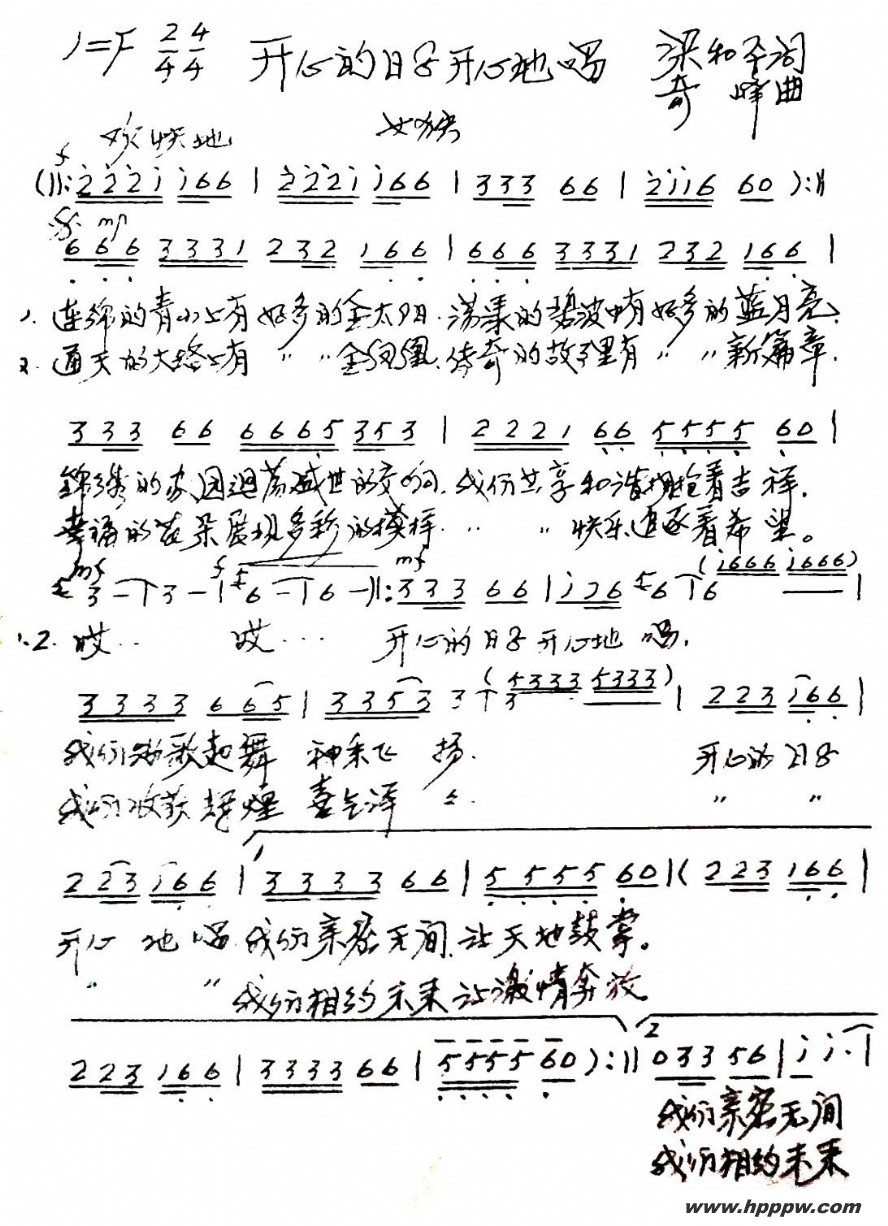 1=F 2/4 4/4 开心的日子开心地唱 梁和平词
奇峰曲
欢快地 女独
f
(‖: 2̇2̇2̇1̇ 1̇66 | 2̇2̇2̇1̇ 1̇66 | 333 66 | 2̇1̇1̇6 60 ):‖
mf
666 3331 232 166 | 666 3331 232 166 |
1. 连绵的青山上有好多的金太阳. 荡漾的碧波中有好多的蓝月亮.
2. 通天的大路上有 〃 〃 金凤凰. 传奇的故事里有 〃 〃 新篇章.
333 66 6665 353 | 2221 66 5555 60 |
锦绣的家园回荡盛世的交响. 我们共享和谐拥抱着吉祥.
幸福的花朵展现多彩的模样. 〃 〃 快乐追逐着希望。
mf f mf (1̇666 1̇666)
3 – | 3 – | 6 – | 6 – ‖: 333 66 | 1̇26 6 | 6 —— |
1.2. 哎… 哎… 开心的日子开心地唱.
(5333 5333)
3333 665 | 3353 3 | 3 | 223 1̇66 |
我们放歌起舞 神采飞扬. 开心的日子
我们收获辉煌 喜气洋 〃. 〃 〃
1
223 1̇66 | 3333 66 | 5555 60 | ( 223 166 |
开心地唱 我们亲密无间. 让天地鼓掌。
〃 〃 我们相约未来让激情奔放
2
223 166 | 3333 66 | 5555 60 ):‖ 033 56 | 1̇ 1̇. |
我们亲密无间
我们相约未来
www.hpppw.com